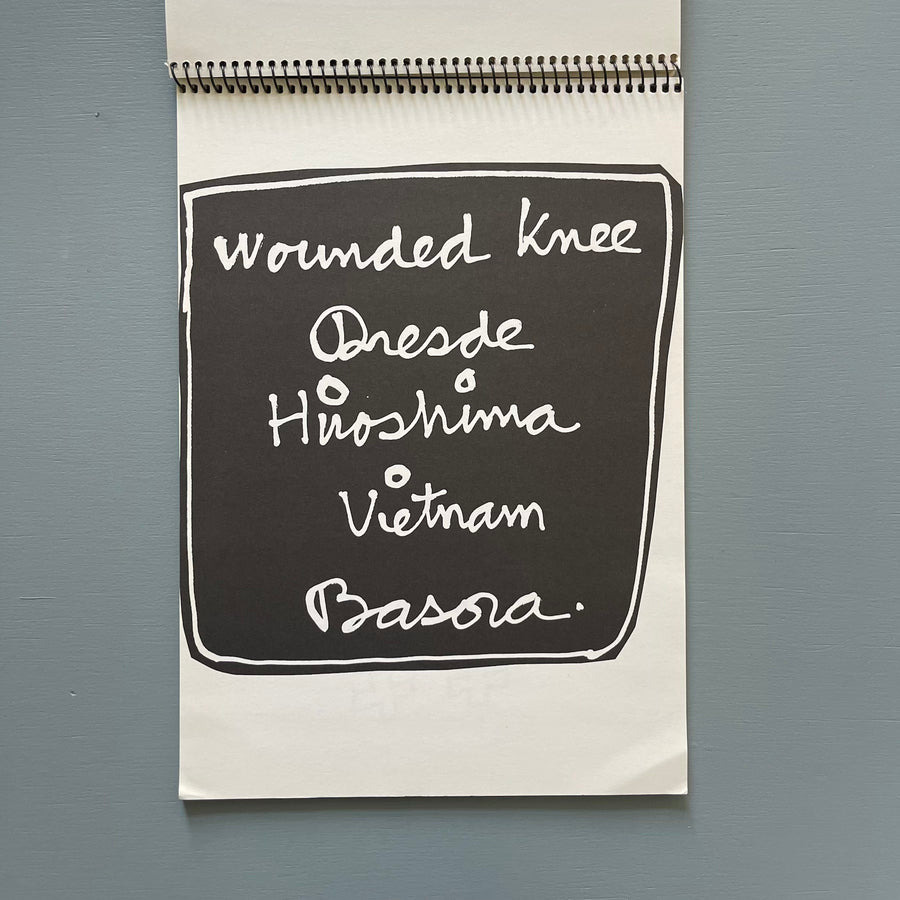 Wounded Knee
Dresde
Hiroshima
Vietnam
Basora.